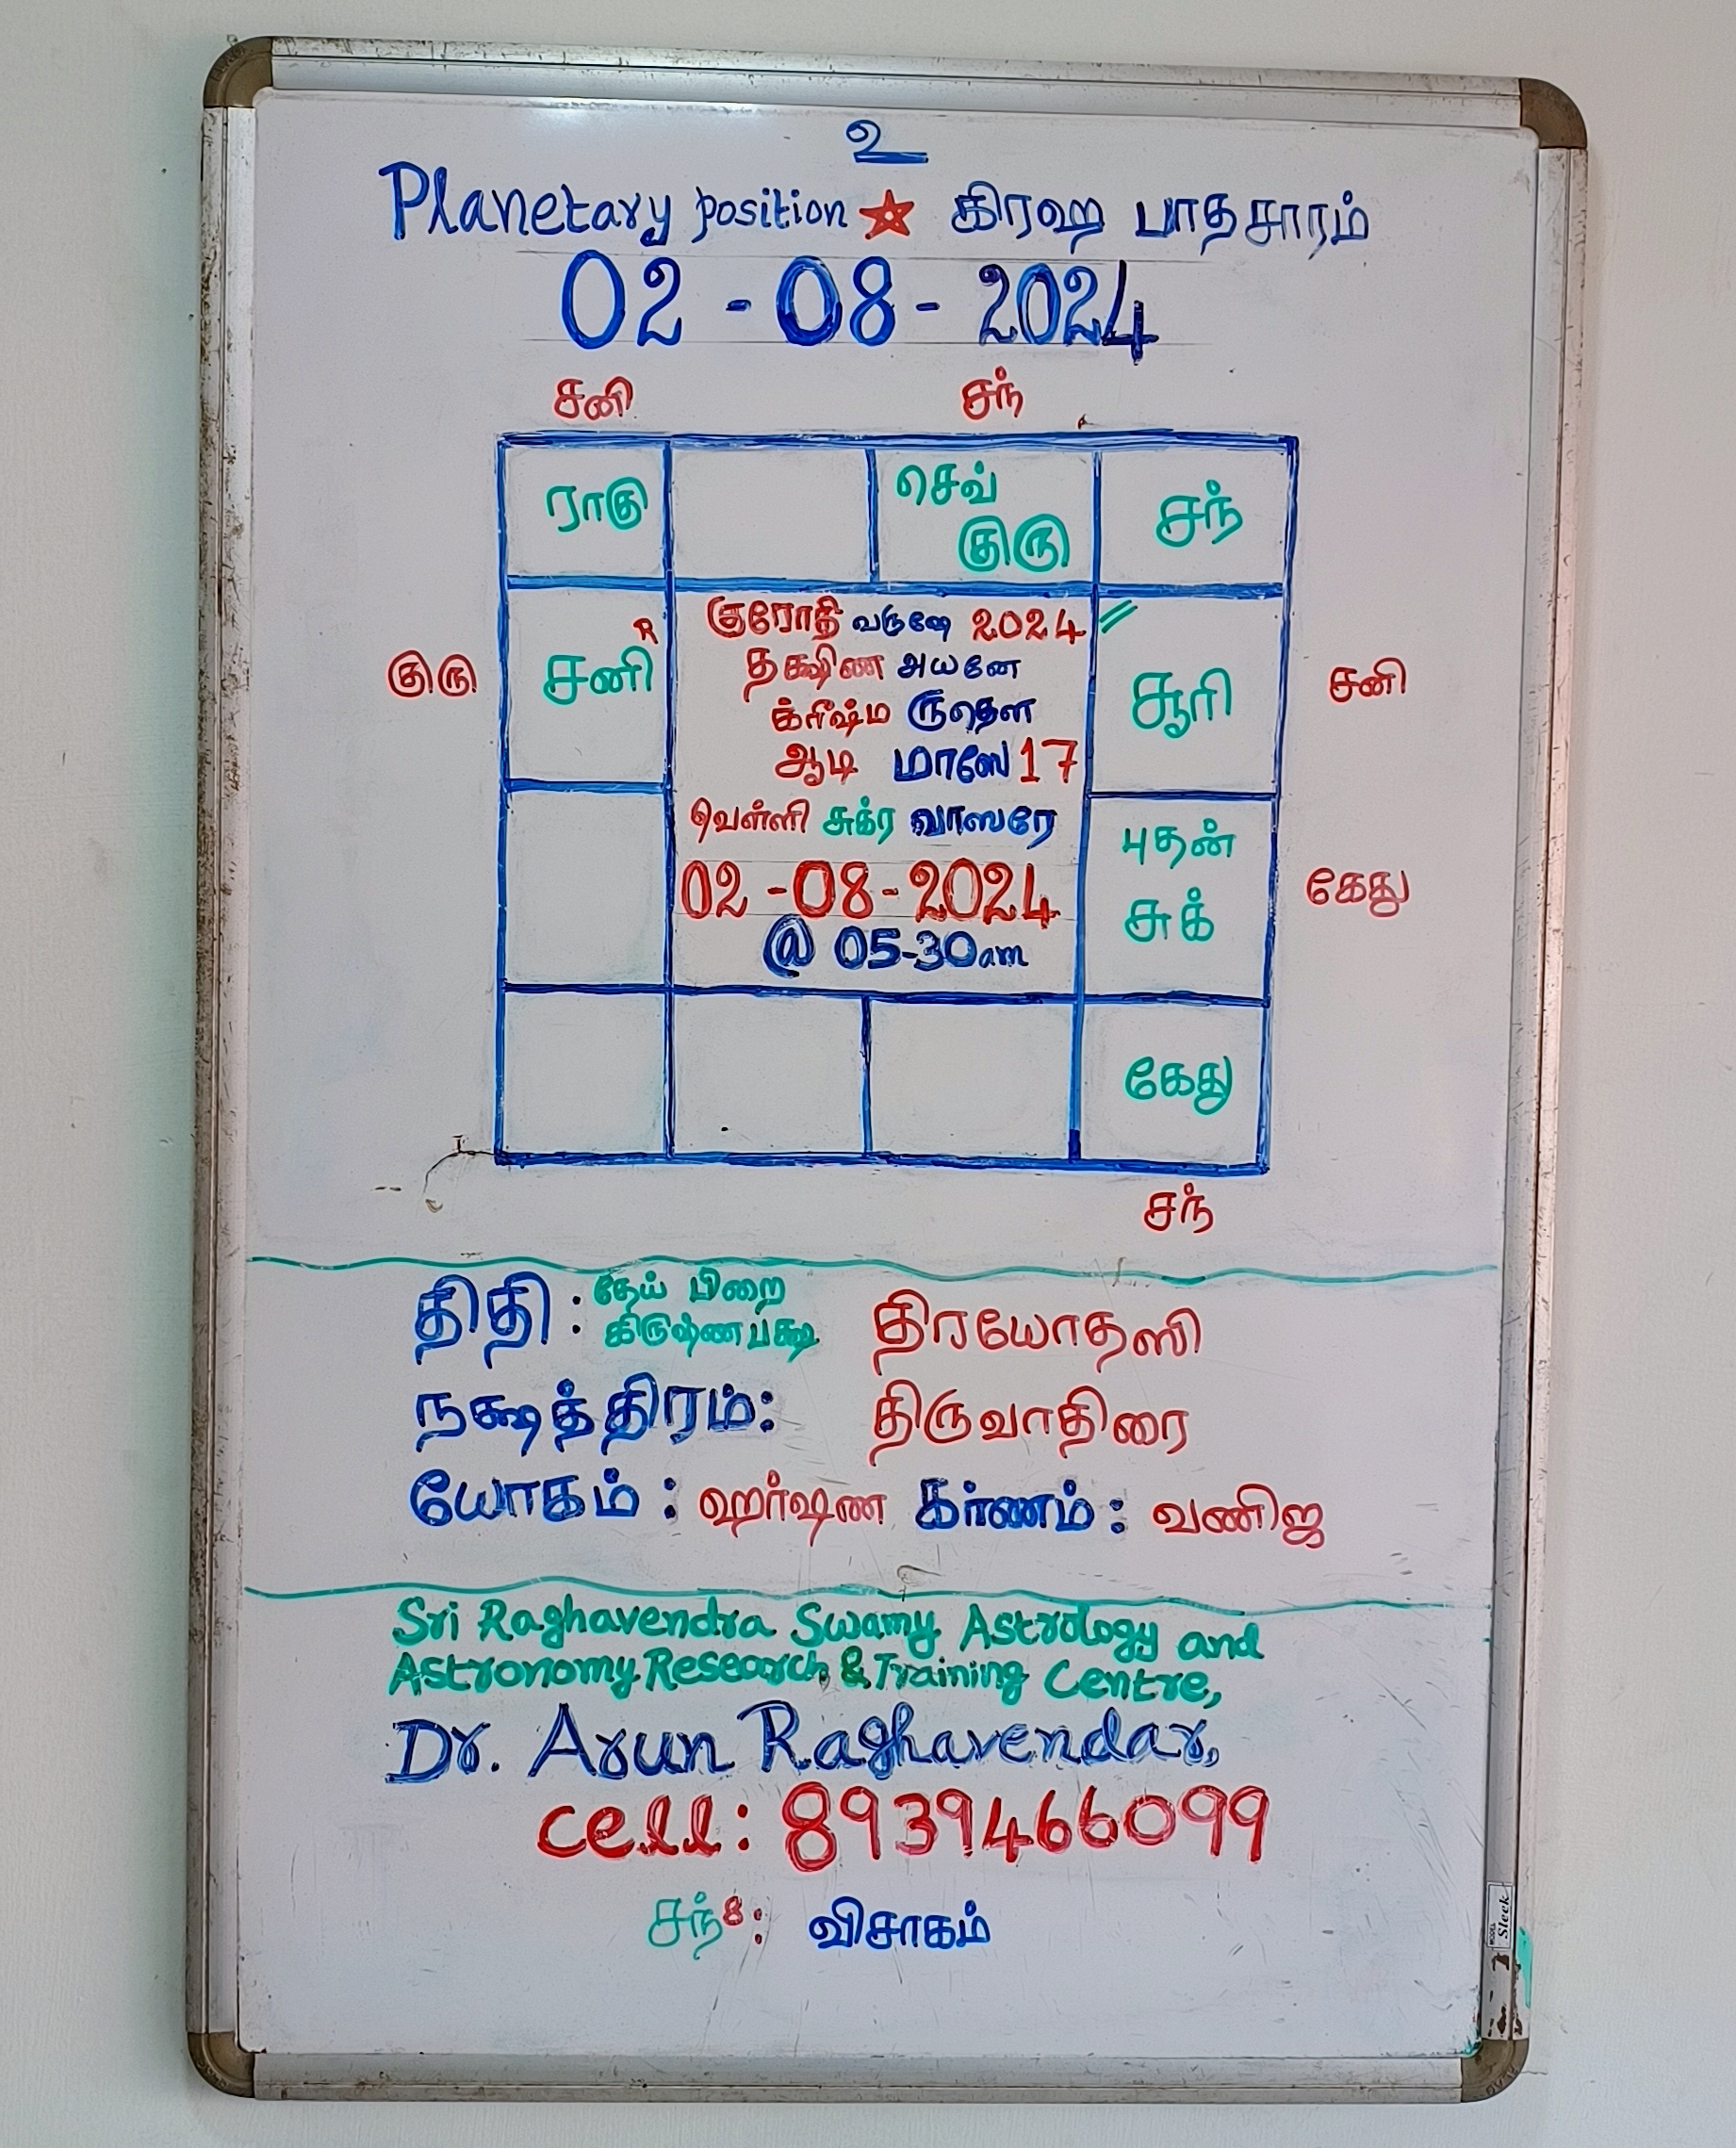 உ
Planetary position ★ கிரஹ பாதசாரம்
02 - 08 - 2024
சனி சந்
ராகு செவ் சந்
குரு
குரோதி வருஷே 2024
R
குரு சனி தக்ஷிண அயனே சூரி சனி
க்ரீஷ்ம ருதௌ
ஆடி மாஸே 17
வெள்ளி சுக்ர வாஸரே புதன்
02 -08-2024 சுக் கேது
@ 05-30am
கேது
சந்
திதி : தேய் பிறை திரயோதஸி
கிருஷ்ணபக்ஷ
நக்ஷத்திரம்: திருவாதிரை
யோகம் : ஹர்ஷண கர்ணம் : வணிஜ
Sri Raghavendra Swamy Astrology and
Astronomy Research & Training Centre,
Dr. Arun Raghavendar,
cell: 8939466099
சந்8: விசாகம்
MODEL Sleek